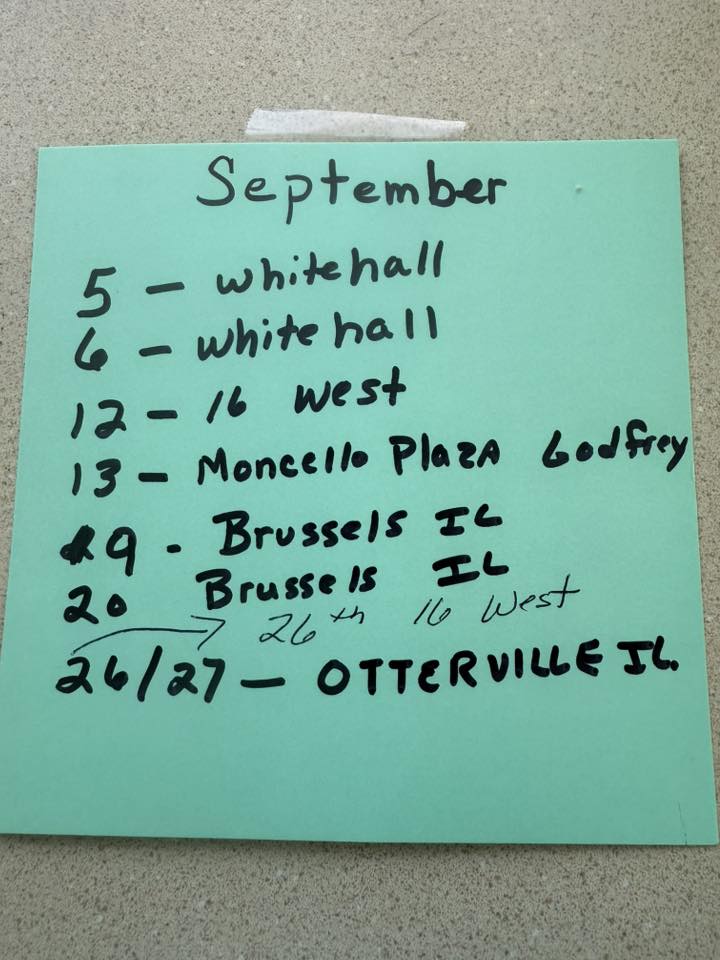 September
5 - whitehall
6 - whitehall
12 - 16 west
13 - Moncello Plaza Godfrey
19 - Brussels IL
20 Brussels IL
26th 16 West
26/27 - OTTERVILLE IL.